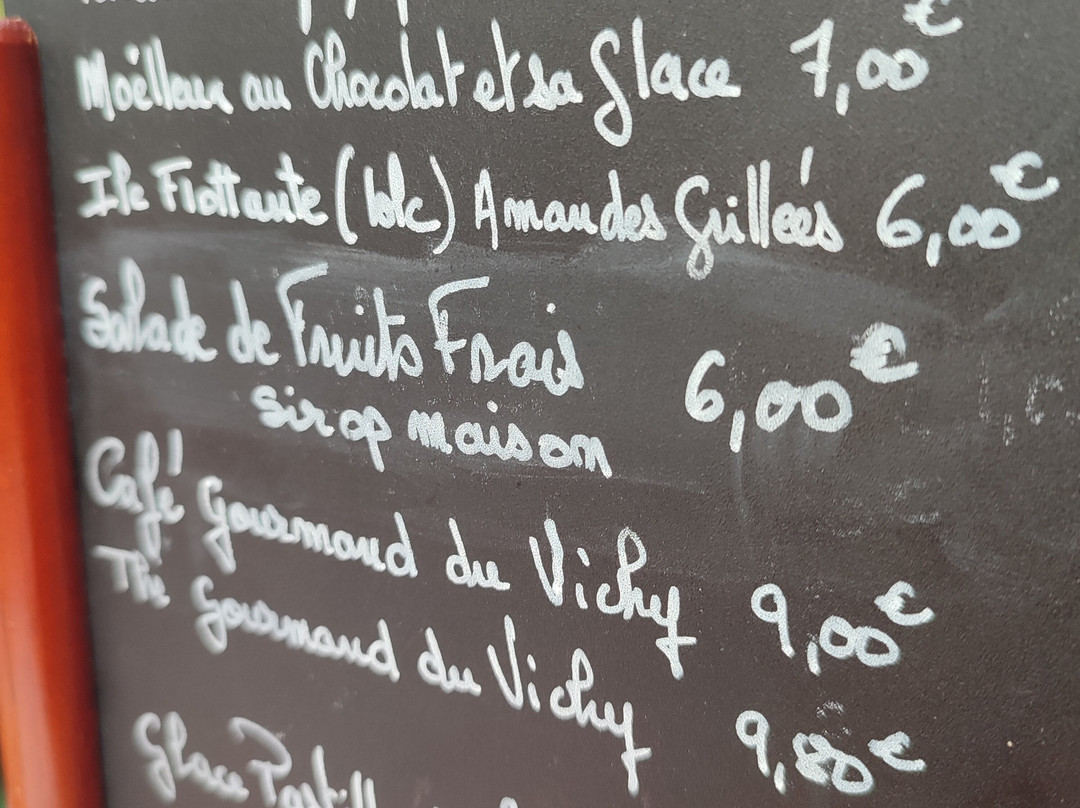 Moëlleux au Chocolat et sa Glace 7,00€
Ile Flottante (blc) Amandes Grillées 6,00€
Salade de Fruits Frais
sirop maison 6,00€
Café Gourmand du Vichy 9,00€
Thé Gourmand du Vichy 9,80€
Glace